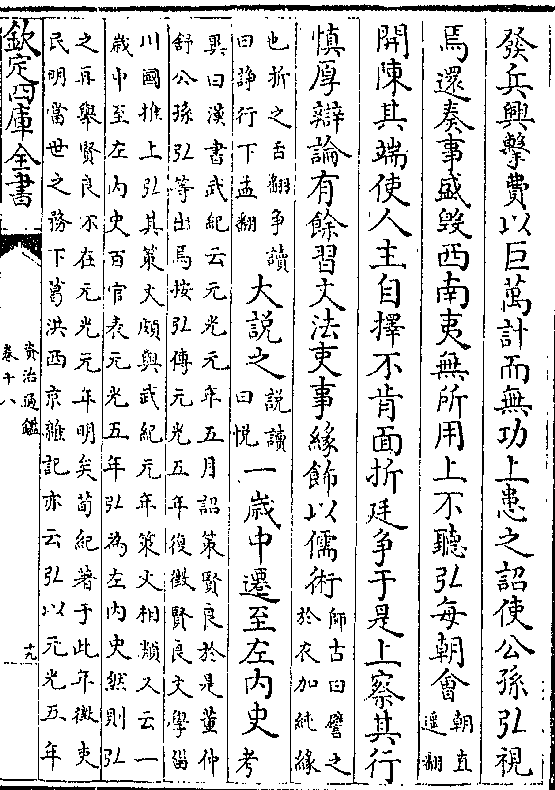 發兵興擊費以巨萬計而無功上患之詔使公孫弘視
焉還奏事盛毀西南夷無所用上不聽弘每朝會朝直
遥翻
開陳其端使人主自擇不肯面折廷争于是上察其行
慎厚辯論有餘習文法吏事緣飾以儒術師古曰譬之
於衣加純緣
也折之舌翻争讀
曰諍行下孟翻
大説之説讀
曰悦
一歳中遷至左内史考
異曰漢書武紀云元光元年五月詔策賢良於是董仲
舒公孫弘等出焉按弘傳元光五年復徵賢良文學菑
川國推上弘其策文頗與武紀元年策文相類又云一
歳中至左内史百官表元光五年弘為左内史然則弘
之再舉賢良不在元光元年明矣荀紀著于此年徵吏
民明當世之務下葛洪西京雜記亦云弘以元光五年
欽定四庫全書
資治通鑑
卷十八
十九